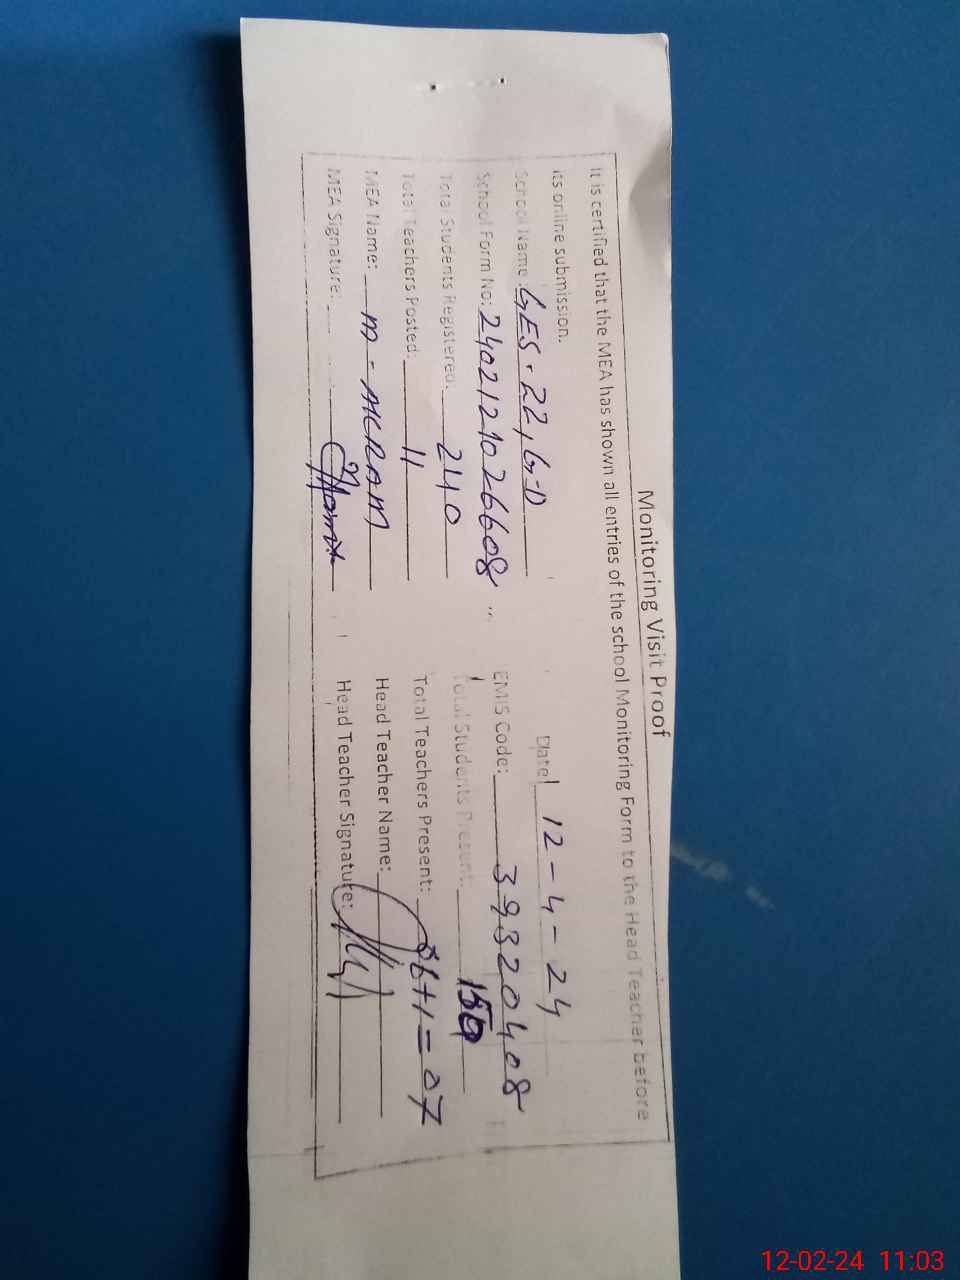 Monitoring Visit Proof
It is certified that the MEA has shown all entries of the school Monitoring Form to the Head Teacher before
its online submission.
Date: 12-4-24
School Name: GES. 22, G-D
EMIS Code: 39320408
School Form No: 2402121026608
Total Students Registered: 240
Total Students Present:
Total Teachers Posted: 11
Total Teachers Present: 06+1=07
MEA Name: M-AKRAM
Head Teacher Name:
MEA Signature:
Head Teacher Signature:
12-02-24 11:03